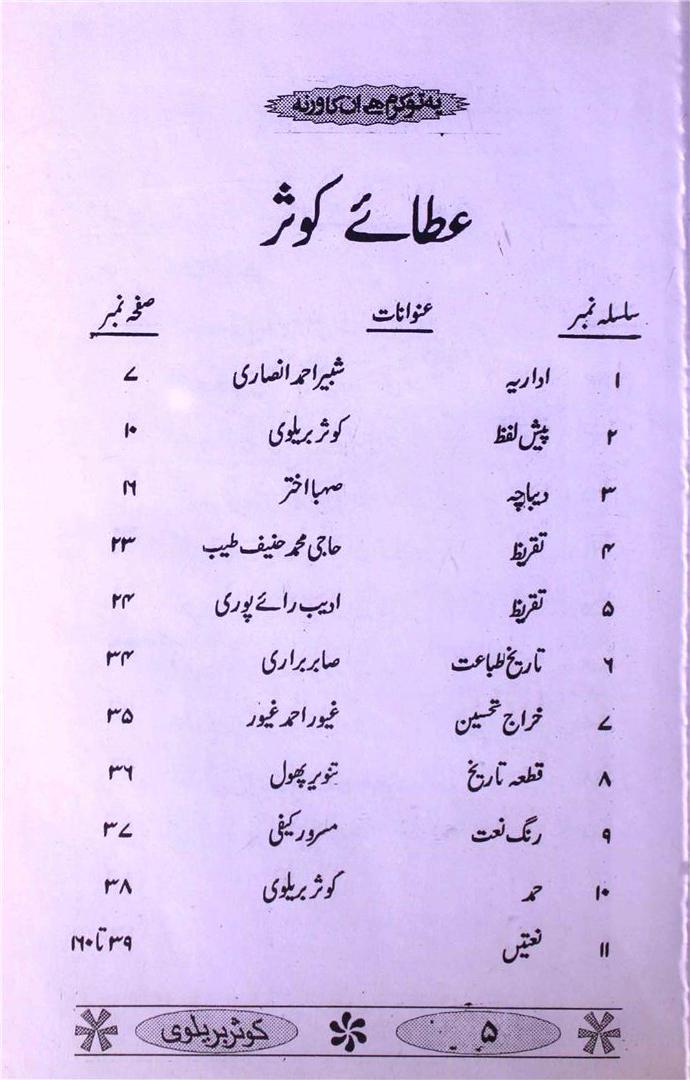 یہ تو کرم ھے ان کا ورنہ
عطائے کوثر
سلسلہ نمبر عنوانات صفحہ نمبر
۱ اداریہ شبیر احمد انصاری ۷
۲ پیش لفظ کوثر بریلوی ۱۰
۳ دیباچہ صہبا اختر ۱۶
۴ تقریظ حاجی محمد حنیف طیب ۲۳
۵ تقریظ ادیب رائے پوری ۲۴
۶ تاریخ طباعت صابر براری ۳۴
۷ خراج تحسین غیور احمد غیور ۳۵
۸ قطعہ تاریخ تنویر پھول ۳۶
۹ رنگ نعت مسرور کیفی ۳۷
۱۰ حمد کوثر بریلوی ۳۸
۱۱ نعتیں ۳۹ تا ۱۶۰
۵ کوثر بریلوی